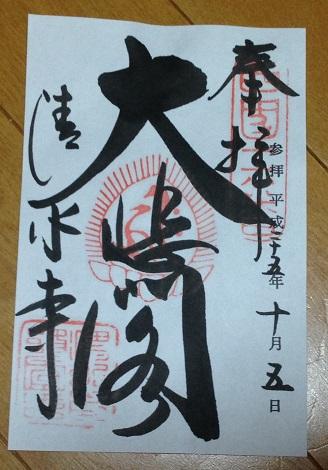 奉拝
参拝 平成二十五年十月五日
大悲閣
清水寺